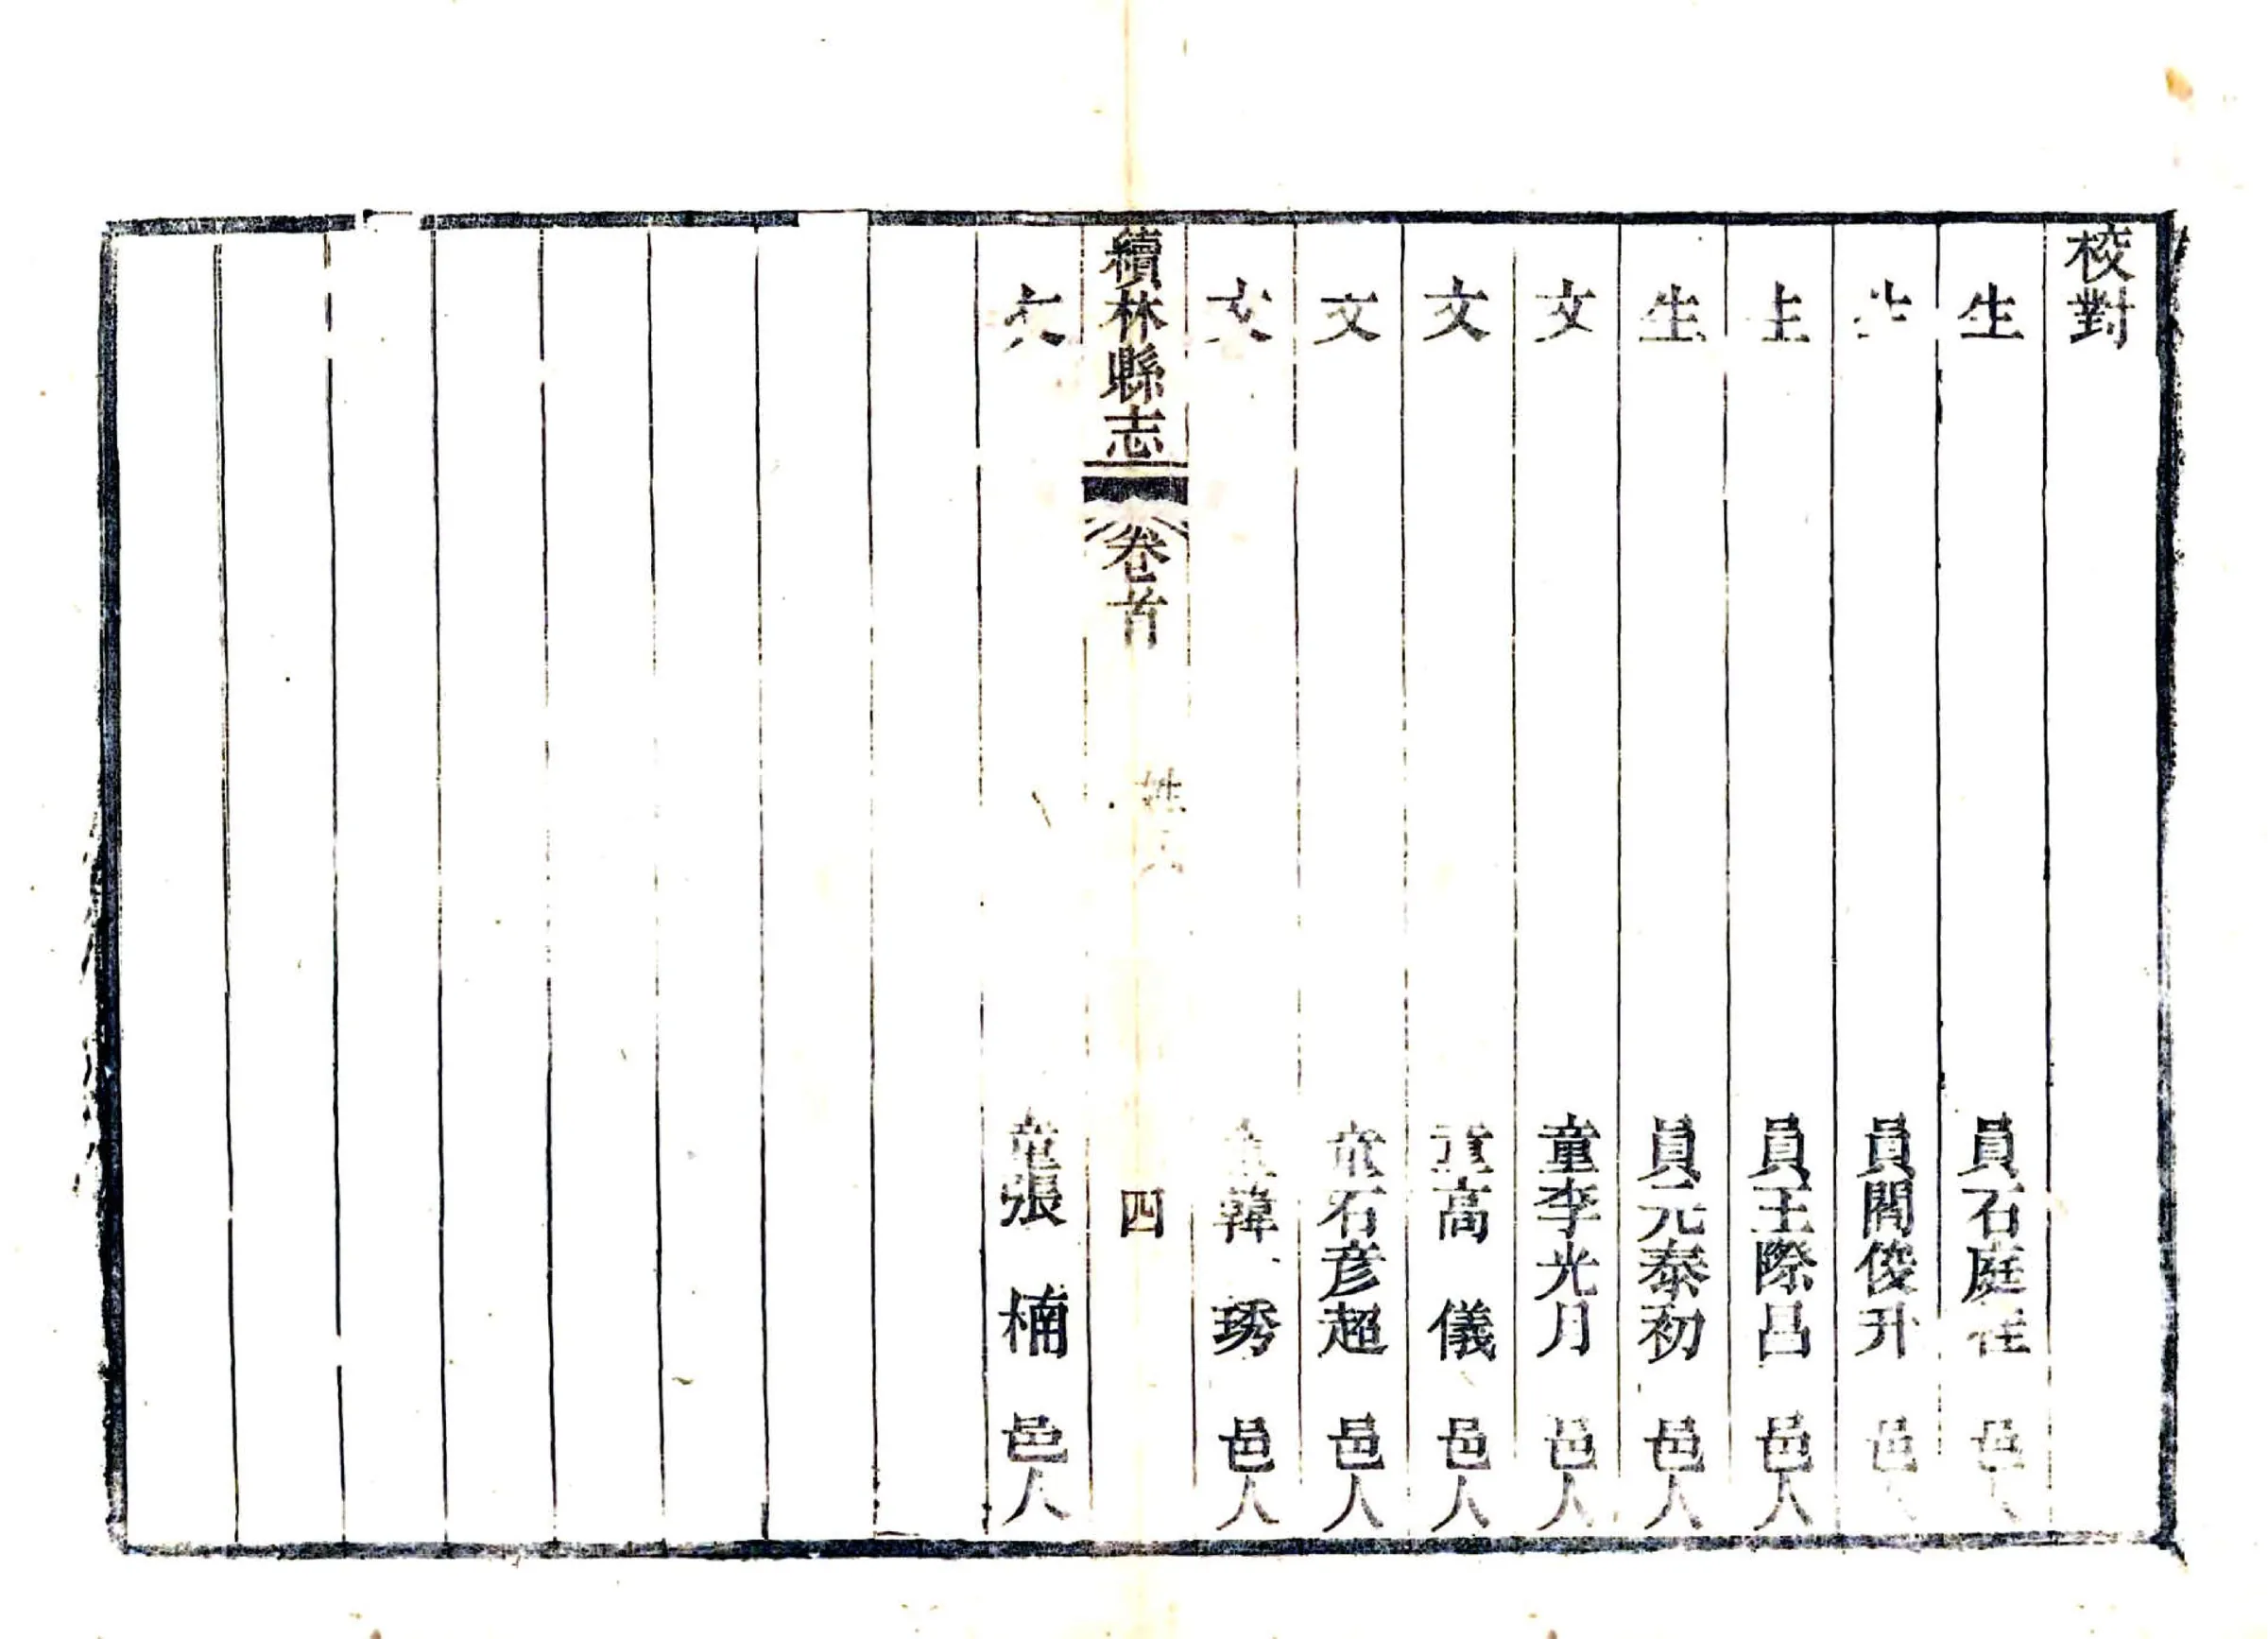 校對
生員石庭 邑人
生員閻俊升 邑人
生員王際昌 邑人
生員元泰初 邑人
文童李光月 邑人
文童高儀 邑人
文童石彥超 邑人
文童韓琇 邑人
續林縣志 卷首 姓氏 四
文童張楠 邑人